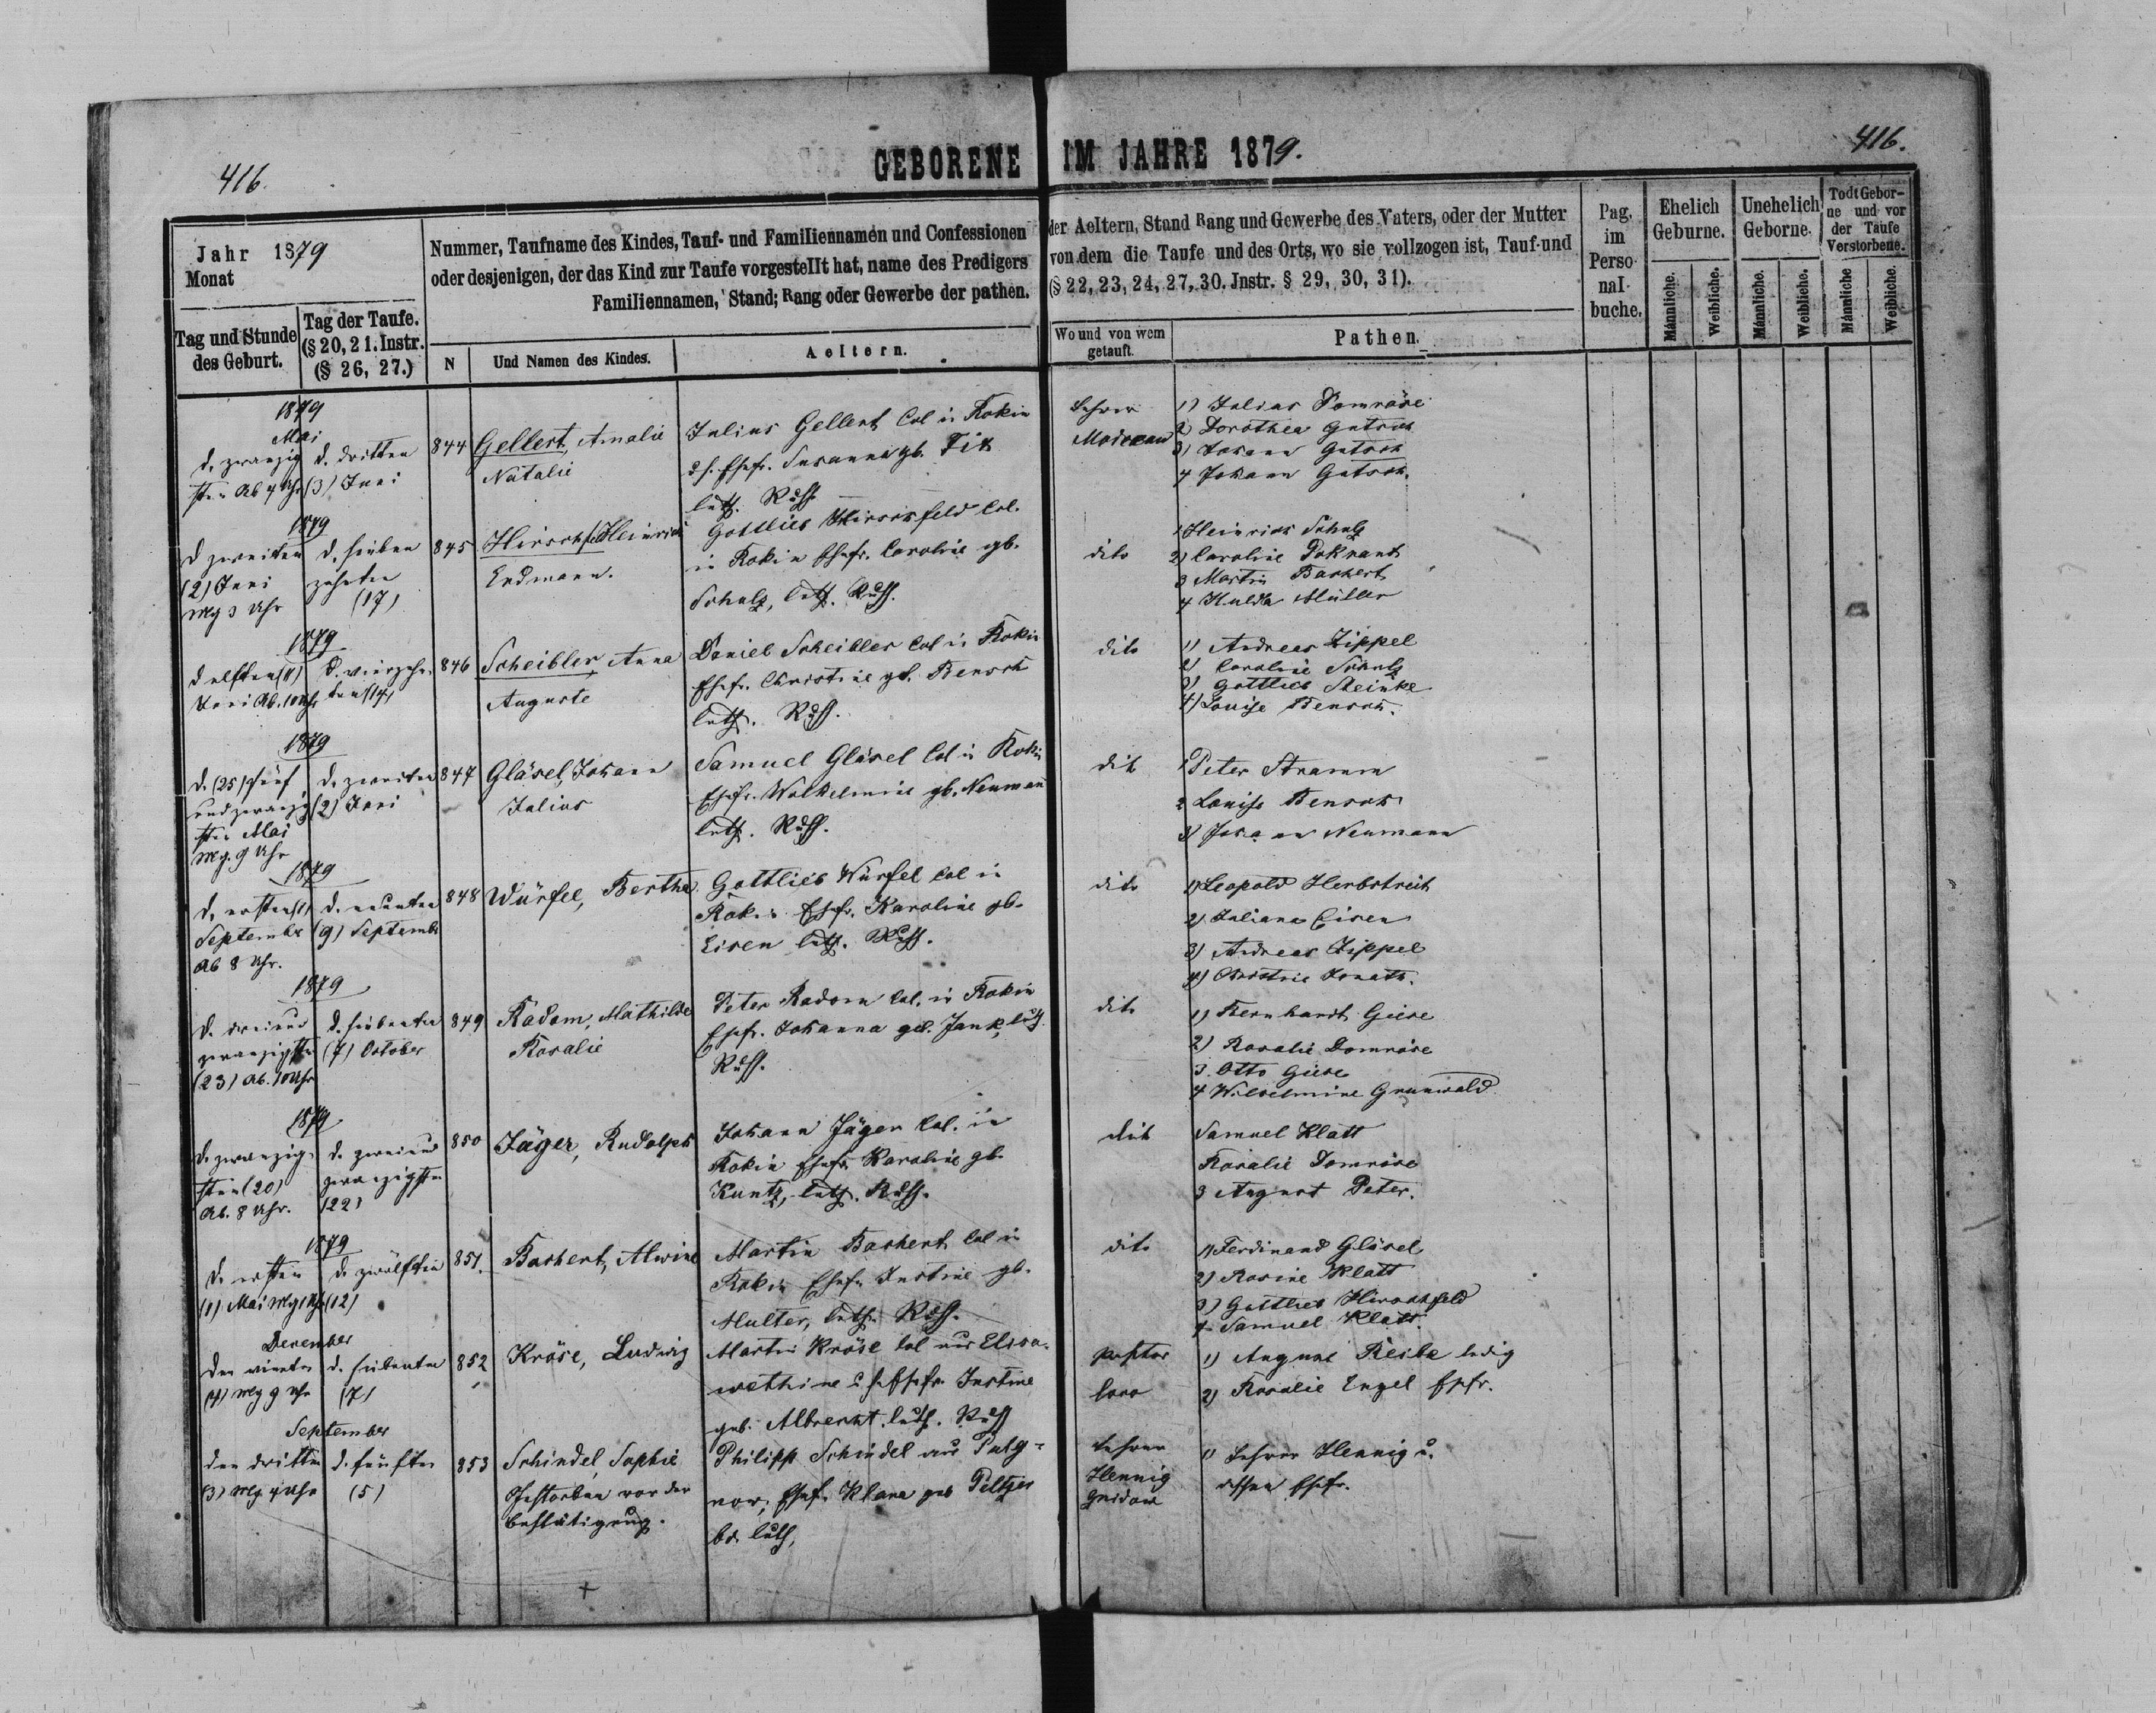 416.
GEBORENE IM JAHRE 1879.
416.
Jahr 1879
Monat
Tag und Stunde des Geburt.
Tag der Taufe. (§ 20, 21. Instr. (§ 26, 27.)
Nummer, Taufname des Kindes, Tauf- und Familiennamen und Confessionen der Aeltern, Stand Rang und Gewerbe des Vaters, oder der Mutter
oder desjenigen, der das Kind zur Taufe vorgestellt hat, name des Predigers von dem die Taufe und des Orts, wo sie vollzogen ist, Tauf-und
Familiennamen, Stand; Rang oder Gewerbe der pathen. (§ 22, 23, 24, 27, 30. Jnstr. § 29, 30, 31).
N
Und Namen des Kindes.
Aeltern.
Wo und von wem getauft.
Pathen.
Pag. im Perso- nal- buche.
Ehelich Geburne.
Unehelich Geborne.
Todt Gebor- ne und vor der Taufe Verstorbene.
Männliche.
Weibliche.
Männliche.
Weibliche.
Männliche
Weibliche.
1879
Mai
d. zwanzig
sten Ab 4 Uhr
d. dritten
(3) Juni
844
Gellert, Amalie
Natalie
Julius Gellert Col in Rokin
d. s. Ehefr. Susanna gb. Fik
luth. Russ.
Lehrer
1) Julius Domröse
2) Dorothea Gatsch
3) Johann Gatsch
4 Johann Gatsch.
1879
d zweiten
(2) Juni
Mg 3 Uhr
d. sieben
zehnten
(17)
845
Hirschf. Heinrich
Erdmann.
Gottlieb Hirschfeld Col.
in Rokin Ehefr. Caroline gb.
Schulz, luth. Russ.
dito
1 Heinrich Schulz
2) Caroline Poknant
3 Martin Baskert
4 Hulda Müller
1879
d elften (11)
Juni Ab. 10 Uhr
d. vierzehn
ten (14)
846
Scheibler, Anna
Auguste
Daniel Scheibler Col in Rokin
Ehefr. Christine gb. Bensch
luth. Russ.
dito
1) Andreas Zippel
2) Caroline Schulz
3) Gottlieb Steinke
4) Louise Bensch.
1879
d. (25) fünf
und zwanzig
sten Mai
Mg. 9 Uhr
d. zweiten
(2) Juni
847
Gläsel, Johann
Julius
Samuel Gläsel Col in Rokin
Ehefr. Wilhelmine gb. Neumann
luth. Russ.
dito
1 Peter Stramm
2 Louise Bensch
3) Johann Neumann
1879
d. ersten (1)
September
Ab 8 Uhr.
d. neunten
(9) September
848
Würfel, Bertha
Gottlieb Würfel Col in
Rokin Ehefr. Karoline gb.
Eisen luth. Russ.
dito
1) Leopold Herbstreit
2) Juliana Eisen
3) Andreas Zippel
4) Christine Jonath.
1879
d. dreiund
zwanzigsten
(23) Ab. 10 Uhr
d. siebenten
(7) October
849
Radom, Mathilde
Rosalie
Peter Radom Col. in Rokin
Ehefr. Johanna geb. Jank, luth
Russ.
dito
1) Bernhardt Giese
2) Rosalie Domröse
3. Otto Giese
4 Wilhelmine Grunwald
1879
d. zwanzig
sten (20)
Ab. 8 Uhr.
d. zweiund
zwanzigsten
(22)
850
Jäger, Rudolph
Johann Jäger Col. in
Rokin Ehefr. Karoline gb.
Kuntz, luth. Russ.
dito
Samuel Klatt
Rosalie Domröse
3 August Peter.
1879
d. ersten
(1) Mai Mg 1 Uhr
d. zwölften
(12)
851.
Baskert, Alwine
Martin Baskert Col in
Rokin Ehefr. Justine gb.
Multer, luth. Russ.
dito
1) Ferdinand Gläsel
2) Rosine Klatt
3) Gottlieb Hirschfeld
4 Samuel Klatt.
December
den vierten
(4) Mg 9 Uhr
d. siebenten
(7)
852
Kröse, Ludwig
Martin Kröse Col aus Elisa-
wethine u. s. Ehefr. Justine
geb. Albrecht. luth. Russ
pastor
loco
1) August Reile ledig
2) Rosalie Engel Ehfr.
September
den dritten
(3) Mg. 4 Uhr
d. fünften
(5)
853
Schindel, Sophie
Gestorben vor der
Bestätigung.
Philipp Schindel aus Pulg-
now, Ehefr. Klara geb Peltzer
bd. luth.
Lehrer
Hennig
1) Lehrer Hennig u.
dessen Ehefr.